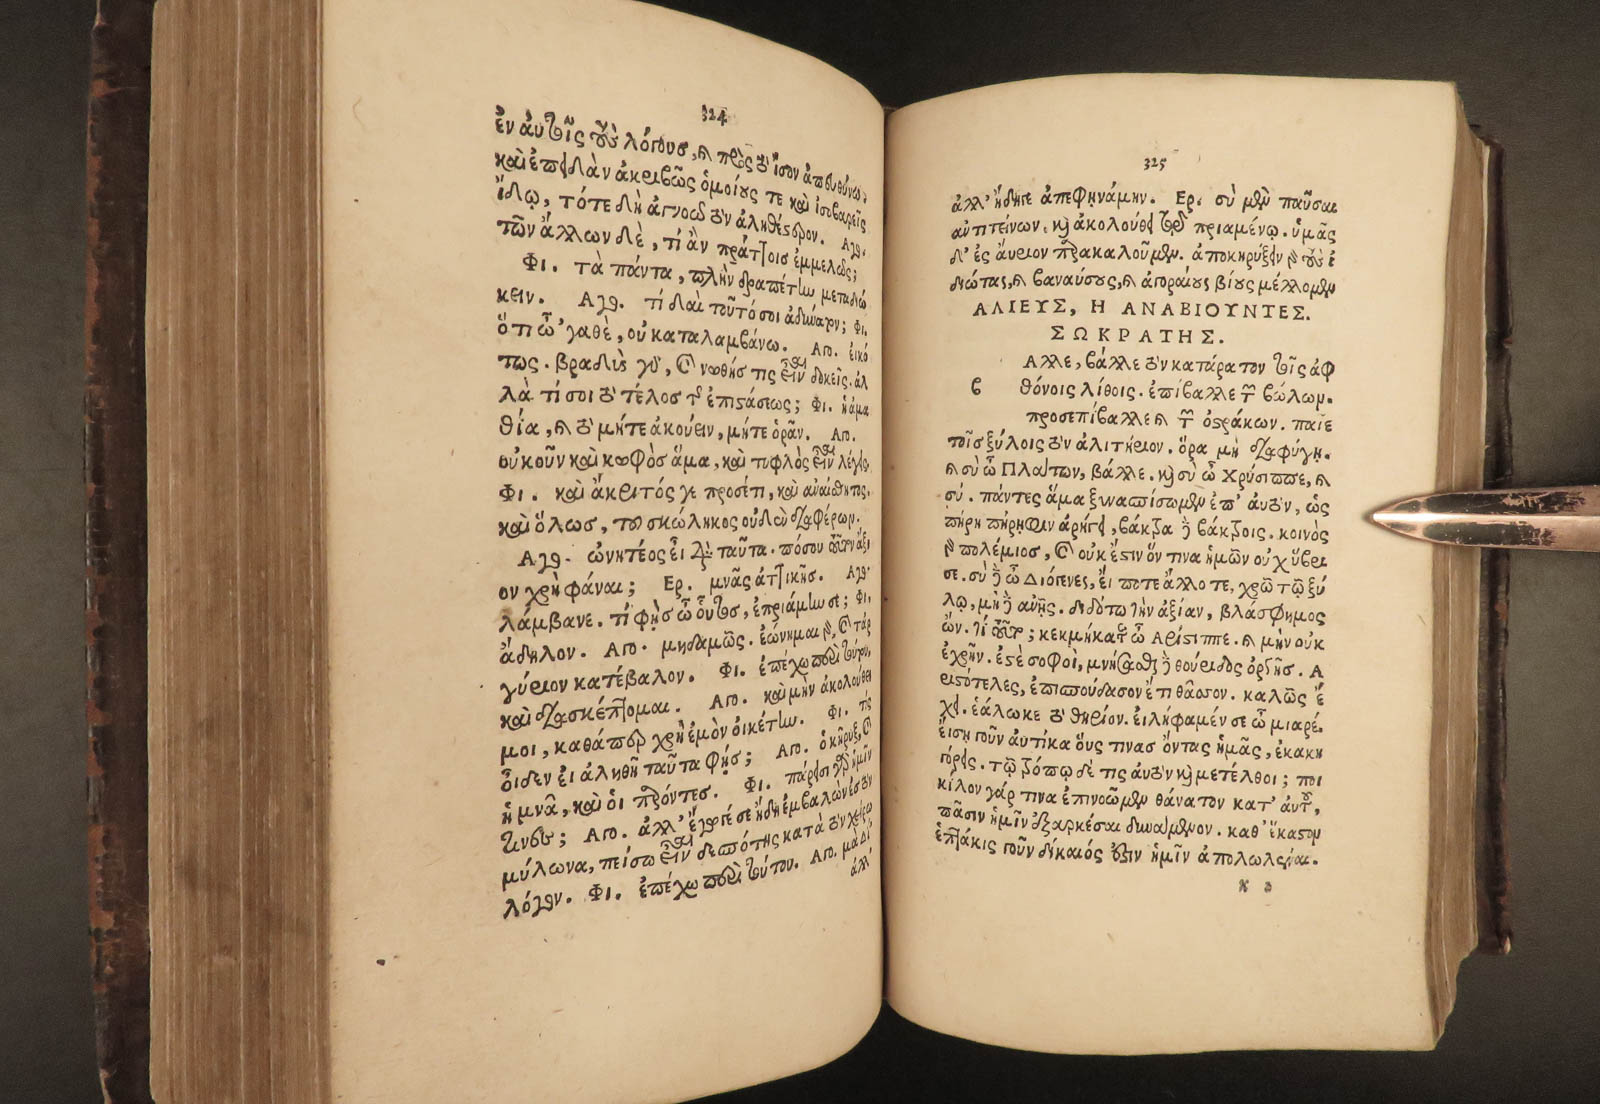 324
ἐν αὐτοῖς τοὺς λόγους, καὶ πρὸς τὸ ἴσον ἀπευθύνω.
καὶ ἐπειδὰν ἀκριβῶς ὁμοίους τε καὶ ἰσοβαρεῖς
ἴδω, τότε δὴ ἀγνοῶ τὸν ἀληθέστερον. Αγο.
τῶν ἄλλων δὲ, τί ἂν πράττοις ἐμμελῶς;
Φι. τὰ πάντα, πλὴν δραπέτην μεταδιώ
κειν. Αγο. τί δαὶ τοῦτό σοι ἀδύνατον; Φι.
ὅτι ὦ 'γαθὲ, οὐ καταλαμβάνω. Αγο. εἰκό
τως. βραδὺς γὰρ, καὶ νωθής τις εἶναι δοκεῖς. ἀλ
λὰ τί σοι τὸ τέλος τῆς ἐπιστάσεως; Φι. ἡ ἀμα
θία, καὶ τὸ μήτε ἀκούειν, μήτε ὁρᾶν. Αγο.
οὐκοῦν καὶ κωφὸς ἅμα, καὶ τυφλὸς εἶναι λέγεις.
Φι. καὶ ἄκριτός γε προσέτι, καὶ ἀναίσθητος.
καὶ ὅλως, τοῦ σκώληκος οὐδὲν διαφέρων.
Αγο. ὠνητέος εἶ διὰ ταῦτα. πόσου τοῦτον ἄξι
ον χρὴ φάναι; Ερ. μνᾶς ἀττικῆς. Αγο.
λάμβανε. τί φῂς ὦ οὗτος, ἐπριάμην σε; Φι.
ἄδηλον. Αγο. μηδαμῶς. ἐώνημαι γὰρ, καὶ τἀρ
γύριον κατέβαλον. Φι. ἐπέχω περὶ τούτου,
καὶ διασκέπτομαι. Αγο. καὶ μὴν ἀκολούθει
μοι, καθάπερ χρὴ ἐμὸν οἰκέτην. Φι. τίς
οἶδεν εἰ ἀληθῆ ταῦτα φῄς; Αγο. ὁ κῆρυξ, καὶ
ἡ μνᾶ, καὶ οἱ παρόντες. Φι. πάρεισι γὰρ ἡμῖν
τινες; Αγο. ἀλλ' ἔγωγέ σε ἤδη ἐμβαλὼν ἐς τὸν
μύλωνα, πείσω εἶναι δεσπότης κατὰ τὸν χείρω
λόγον. Φι. ἐπέχω περὶ τούτου. Αγο. μὰ Δί
ἀλλ'
325
ἀλλ' ἤδη γε ἀπεφηνάμην. Ερ. σὺ μὲν παῦσαι
ἀντιτείνων, καὶ ἀκολούθει τῷ πριαμένῳ. ὑμᾶς
δ' ἐς αὔριον παρακαλοῦμεν. ἀποκηρύξειν γὰρ τοὺς ἰ
διώτας, καὶ βαναύσους, καὶ ἀγοραίους βίους μέλλομεν
ΑΛΙΕΥΣ, Η ΑΝΑΒΙΟΥΝΤΕΣ.
ΣΩΚΡΑΤΗΣ.
Αλλε, βάλλε τὸν κατάρατον τοῖς ἀφ
β θόνοις λίθοις. ἐπίβαλλε τῶν βώλων.
προσεπίβαλλε καὶ τῶν ὀστράκων. παῖε
τοῖς ξύλοις τὸν ἀλιτήριον. ὅρα μὴ διαφύγῃ.
καὶ σὺ ὦ Πλάτων, βάλλε. καὶ σὺ ὦ Χρύσιππε, καὶ
σύ. πάντες ἅμα ξυνασπίσωμεν ἐπ' αὐτὸν, ὡς
πήρη πήρηφιν ἀρήγει, βάκτρα δὲ βάκτροις. κοινὸς
γὰρ πολέμιος, καὶ οὐκ ἔστιν ὅν τινα ἡμῶν οὐχ ὕβρι
σε. σὺ δὲ ὦ Διόγενες, εἴ ποτε ἄλλοτε, χρῶ τῷ ξύ
λῳ, μὴ δὲ ἀνῇς. διδότω τὴν ἀξίαν, βλάσφημος
ὤν. τί τοῦτο; κεκμήκατε ὦ Αρίστιππε. καὶ μὴν οὐκ
ἐχρῆν. ἔστὲ σοφοὶ, μνήσασθε δὲ θούριδος ὀργῆς. Α
ριστότελες, ἐπισπούδασον ἔτι θᾶσσον. καλῶς ἔ
χει. ἑάλωκε τὸ θηρίον. εἰλήφαμέν σε ὦ μιαρέ.
εἴσῃ γοῦν αὐτίκα οὕς τινας ὄντας ἡμᾶς, ἐκακη
γόρεις. τῷ τρόπῳ δέ τις αὐτὸν καὶ μετέλθοι; ποι
κίλον γάρ τινα ἐπινοῶμεν θάνατον κατ' αὐτοῦ,
πᾶσιν ἡμῖν ἐξαρκέσαι δυνάμενον. καθ' ἕκαστον
ἑπτάκις γοῦν δίκαιός ἐστιν ἡμῖν ἀπολωλέναι.